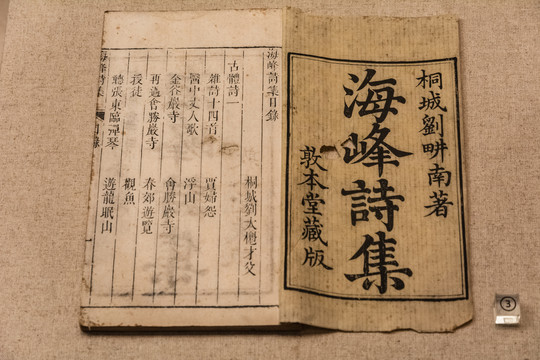 桐城劉畊南著
海峰詩集
敦本堂藏版
海峰詩集目錄
桐城劉大櫆才父
古體詩一
雜詩十四首
賈婦怨
浮山
金谷巖寺
會勝巖寺
再過會勝巖寺
春郊遊覽
授徒
觀魚
聽張東臨彈琴
遊龍眠山
海峰詩集
目錄
③